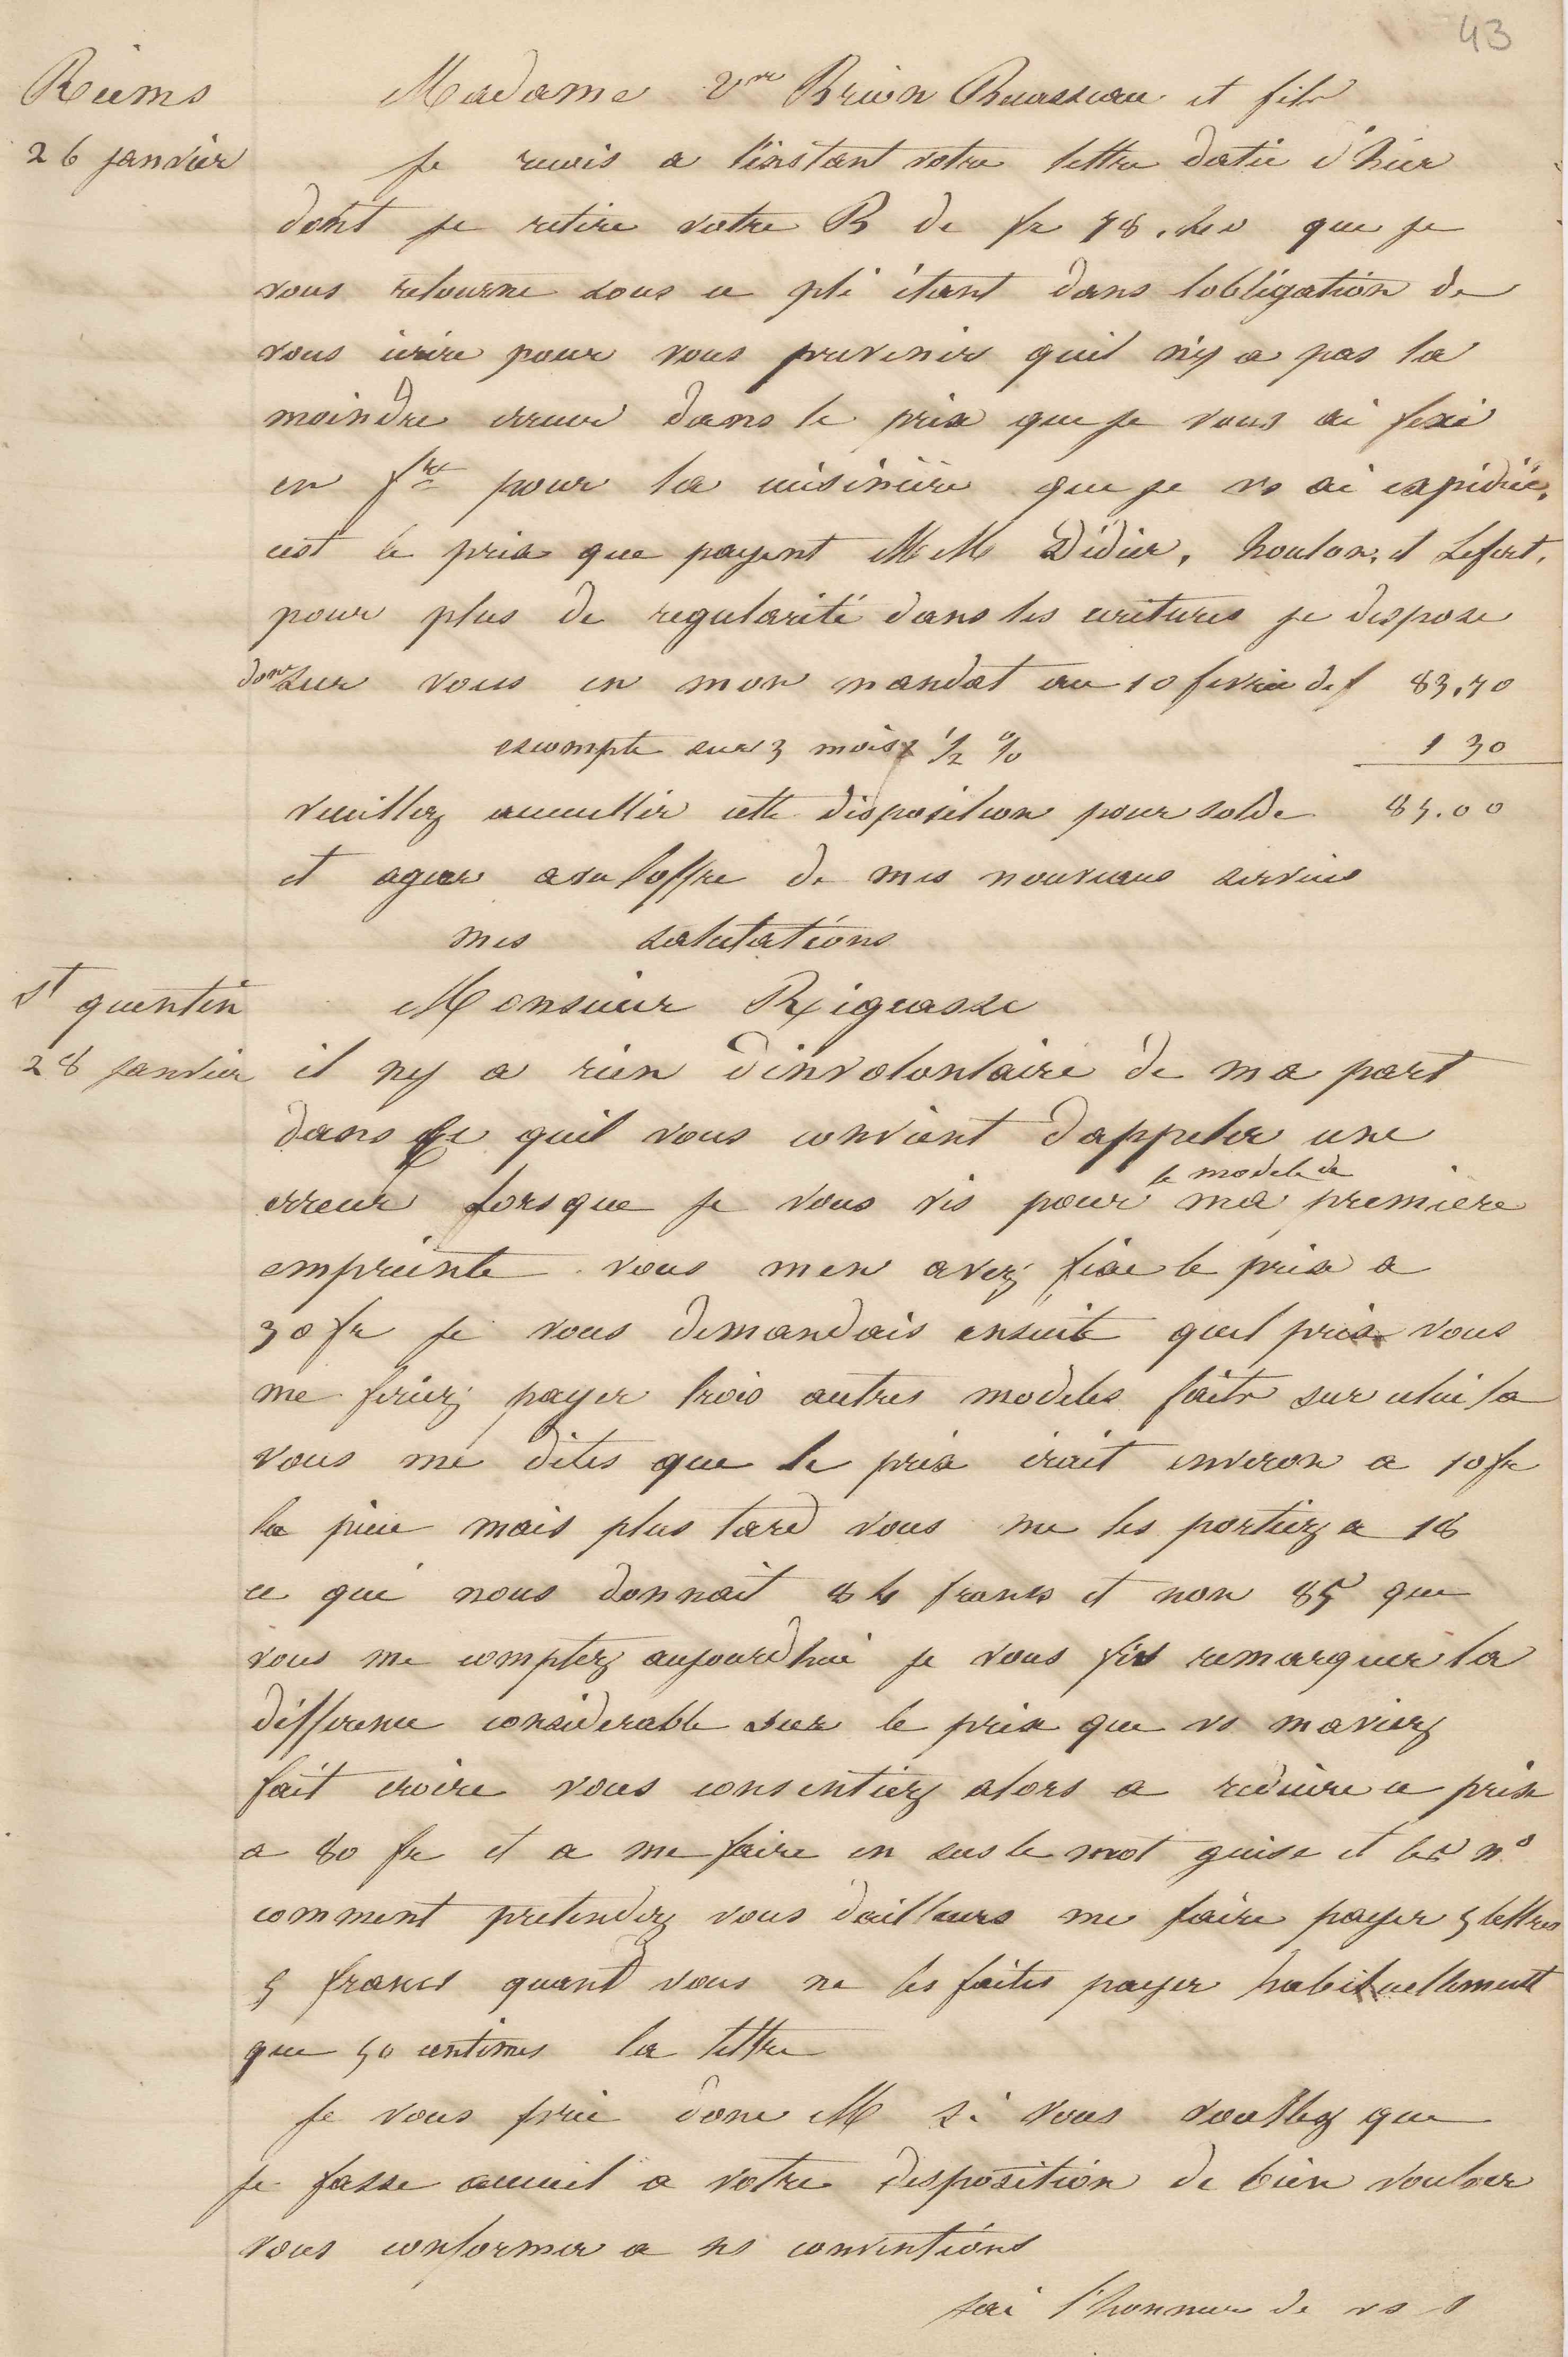 43
Reims
Madame Vve Brion Rousseau et fils
26 janvier
je recois a l'instant votre lettre datée d'hier
dont je retire votre B de fr 78.20 que je
vous retourne sous ce pli étant dans lobligation de
vous écrire pour vous prevenir quil ny a pas la
moindre erreur dans le prix que je vous ai fixé
en fre pour la cuisinière que je vs ai expédiée,
cest le prix que payent MM Didier, houlon, et Lefert,
pour plus de regularité dans les ecritures je dispose
donc sur vous en mon mandat au 10 fevrier de f 83,70
escompte sur 3 mois 1 ½ % 1 30
veuillez accueillir cette disposition pour solde 85.00
et agréer avec loffre de mes nouveaux services
mes salutations
St quentin
Monsieur Riguasse
28 janvier
il ny a rien dinvolontaire de ma part
dans ce quil vous convient dappeler une
erreur lorsque je vous vis pour le modele de ma premiere
empreinte vous men avez fixé le prix a
30 fr je vous demandais ensuite quel prix vous
me feriez payer trois autres modeles faits sur celui la
vous me dites que le prix irait environ a 10 fr
la piece mais plus tard vous me les portiez a 18
ce qui nous donnait 84 francs et non 85 que
vous me comptez aujourdhui je vous fis remarquer la
difference considerable sur le prix que vs maviez
fait croire vous consentiez alors a reduire ce prix
a 80 fr et a me faire en sus le mot guise et les nos
comment pretendez vous dailleurs me faire payer 5 lettres
5 francs quand vous ne les faites payer habituellement
que 50 centimes la lettre
je vous prie donc M si vous voulez que
je fasse accueil a votre disposition de bien vouloir
vous conformer a ns conventions
jai l'honneur de vs s